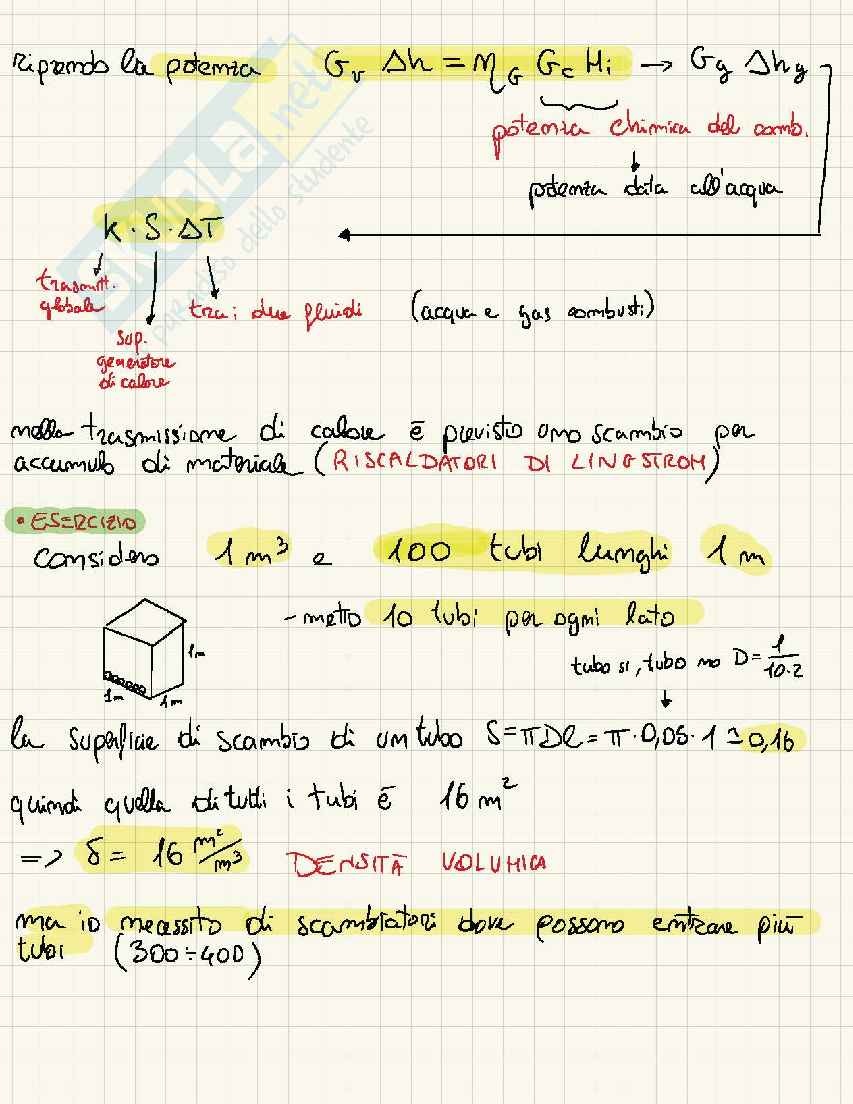 riprendo la potenza G_v Δh = η_G G_c H_i → G_g Δh_g
potenza chimica del comb.
potenza data all'acqua
k · S · ΔT
trasmitt. globale
tra i due fluidi (acqua e gas combusti)
sup. generatore di calore
nella trasmissione di calore è previsto uno scambio per
accumulo di materiale (RISCALDATORI DI LINGSTROM)
• ESERCIZIO
considero 1 m³ e 100 tubi lunghi 1 m
- metto 10 tubi per ogni lato
1m
1m
1m
tubo si, tubo no D = 1/(10·2)
la superficie di scambio di un tubo S = πDl = π · 0,05 · 1 ≃ 0,16
quindi quella di tutti i tubi è 16 m²
=> δ = 16 m²/m³ DENSITÀ VOLUMICA
ma io necessito di scambiatori dove possono entrare più
tubi (300÷400)
SKUOLA.net
paradiso dello studente